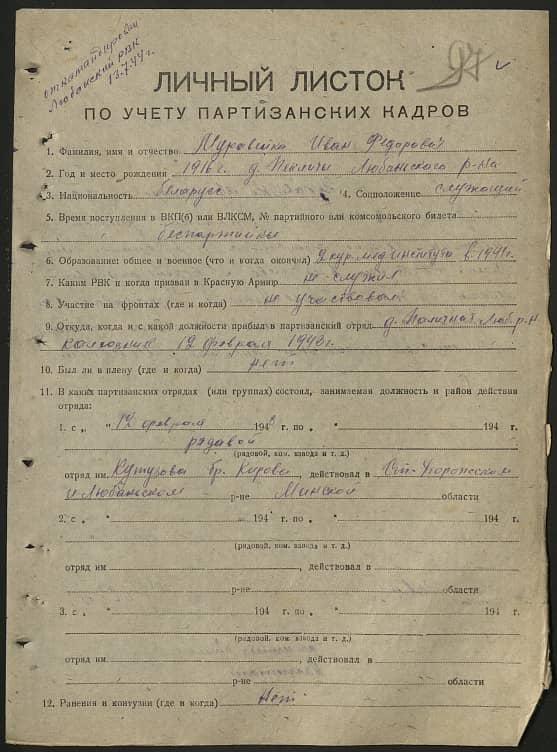 откомандирован
Любанский РВК
13.7.44 г.
97
ЛИЧНЫЙ ЛИСТОК
ПО УЧЕТУ ПАРТИЗАНСКИХ КАДРОВ
1. Фамилия, имя и отчество Муравейко Иван Федорович
2. Год и место рождения 1916 г. д. Любанского р-на
3. Национальность беларус 4. Соцположение служащий
5. Время поступления в ВКП(б) или ВЛКСМ, № партийного или комсомольского билета
беспартийный
6. Образование: общее и военное (что и когда окончил) 2 кур. мединститута в 1941 г.
7. Каким РВК и когда призван в Красную Армию не служил
8. Участие на фронтах (где и когда) не участвовал
9. Откуда, когда и с какой должности прибыл в партизанский отряд д. Люб. р-н
колхозник 12 февраля 1943 г.
10. Был ли в плену (где и когда) нет
11. В каких партизанских отрядах (или группах) состоял, занимаемая должность и район действия
отряда:
1. с „ 12 " февраля 1943 г. по „ " 194 г.
рядовой
(рядовой, ком. взвода и т. д.)
отряд им. Кутузова бр. Кирова, действовал в Ст-Дорожском
и Любанском р-не Минской области
2. с „ " 194 г. по „ " 194 г.
(рядовой, ком. взвода и т. д.)
отряд им , действовал в
р-не области
3. с „ " 194 г. по „ " 194 г.
(рядовой, ком. взвода и т. д.)
отряд им , действовал в
р-не области
12. Ранения и контузии (где и когда) Нет